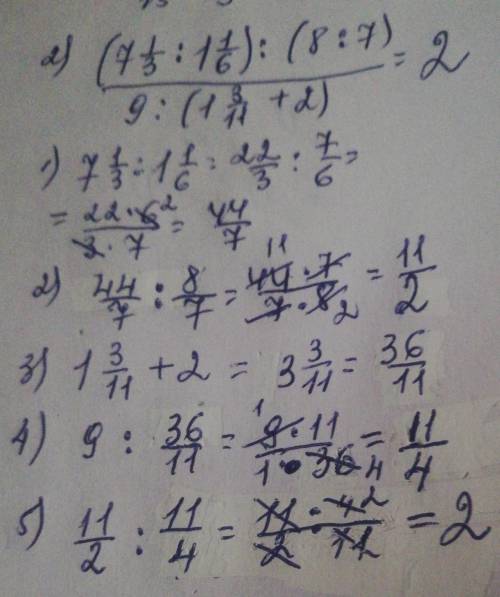 2) (7 1/3 : 1 1/6) : (8 : 7) / 9 : (1 3/11 + 2) = 2
1) 7 1/3 : 1 1/6 = 22/3 : 7/6 =
= 22 · 6 2 / 3 · 7 = 44/7
2) 44/7 : 8/7 = 11 44 · 7 / 7 · 8 2 = 11/2
3) 1 3/11 + 2 = 3 3/11 = 36/11
4) 9 : 36/11 = 1 9 · 11 / 1 · 36 4 = 11/4
5) 11/2 : 11/4 = 11 · 4 2 / 2 · 11 = 2